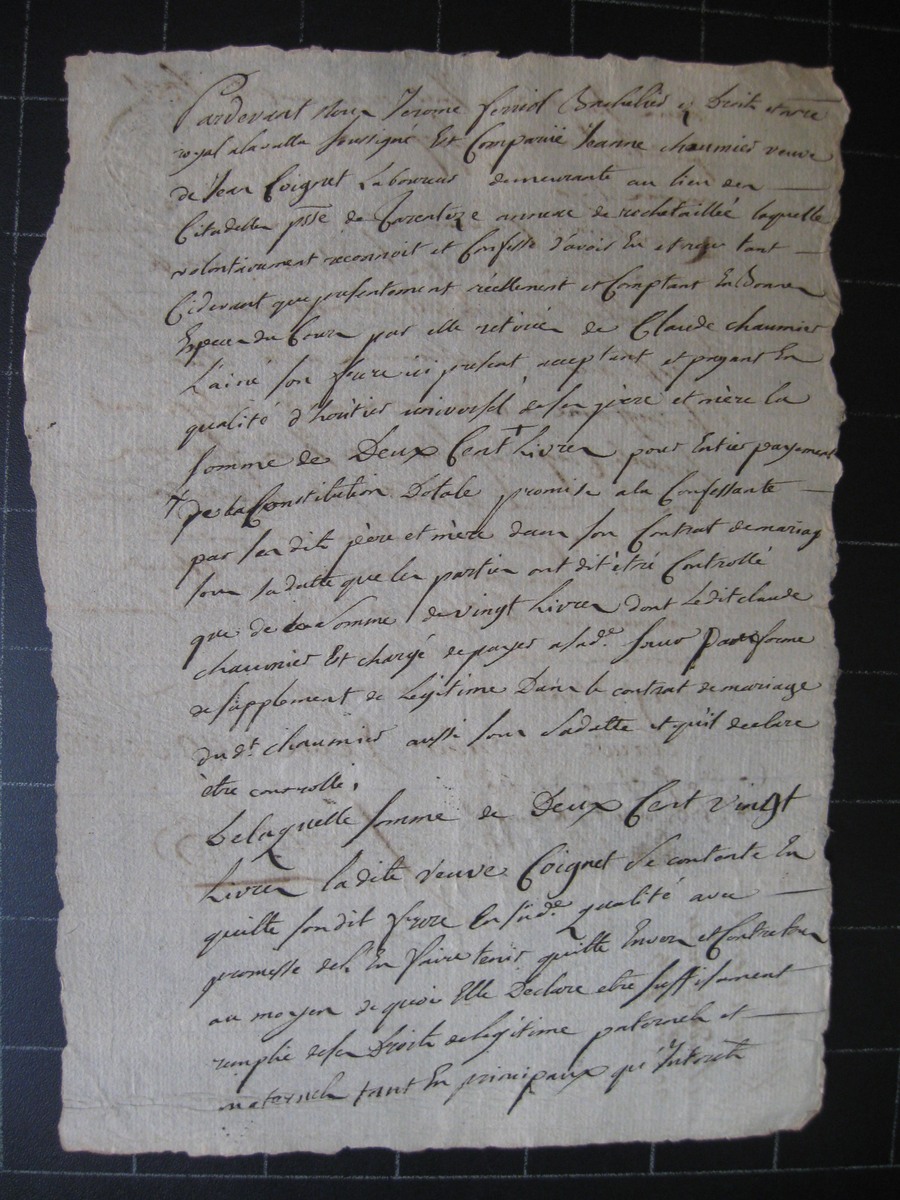 Pardevant nous Jerome ferriol Bachelier es Droits et nre
royal alavalla soussigné Est Comparüe Jeanne chaumier veuve
de Jean Coignet Laboureur demeurante au lieu des
Citadelles psse de Tarentaze annexe de rochetaillée laquelle
volontairement reconnoit et Confesse d'avoir Eu et reçu tant
Cidevant que presentement réellement et Comptant En Bonnes
Especes du Cours par elle retirées de Claude chaumier
L'ainé son frere ici present acceptant et payant En
qualité d'héritier universel de ses père et mère la
somme de Deux Cent + Livres pour Entier payement
+ De la Constitution Dotale promise ala Confessante
par sesdits père et mère dans son Contrat de mariag
sous sa datte que les parties ont dit être Controllé
que de la somme de vingt Livres dont Ledit claude
chaumier Est chargé de payer a sade. soeur par forme
de supplement de Legitime Dans le contrat de mariage
du dt. chaumier aussi sous sa datte et qu'il declare
être controllé.
De laquelle somme de Deux Cent vingt
Livres ladite veuve Coignet se contente En
quitte sondit frere En sade. qualité avec
promesse de l'En faire tenir quitte Envers et Contre tous
au moyen de quoi Elle Declare etre suffisament
remplie de ses Droits de legitime paternels et
maternels tant En principaux qu'Interets